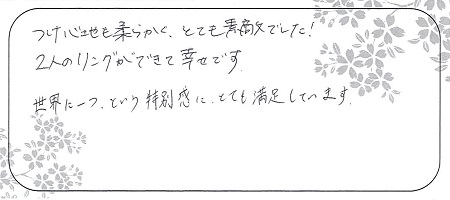 つけ心地も柔らかく、とても素敵でした!
2人のリングができて幸せです
世界に一つ、という特別感に、とても満足しています。